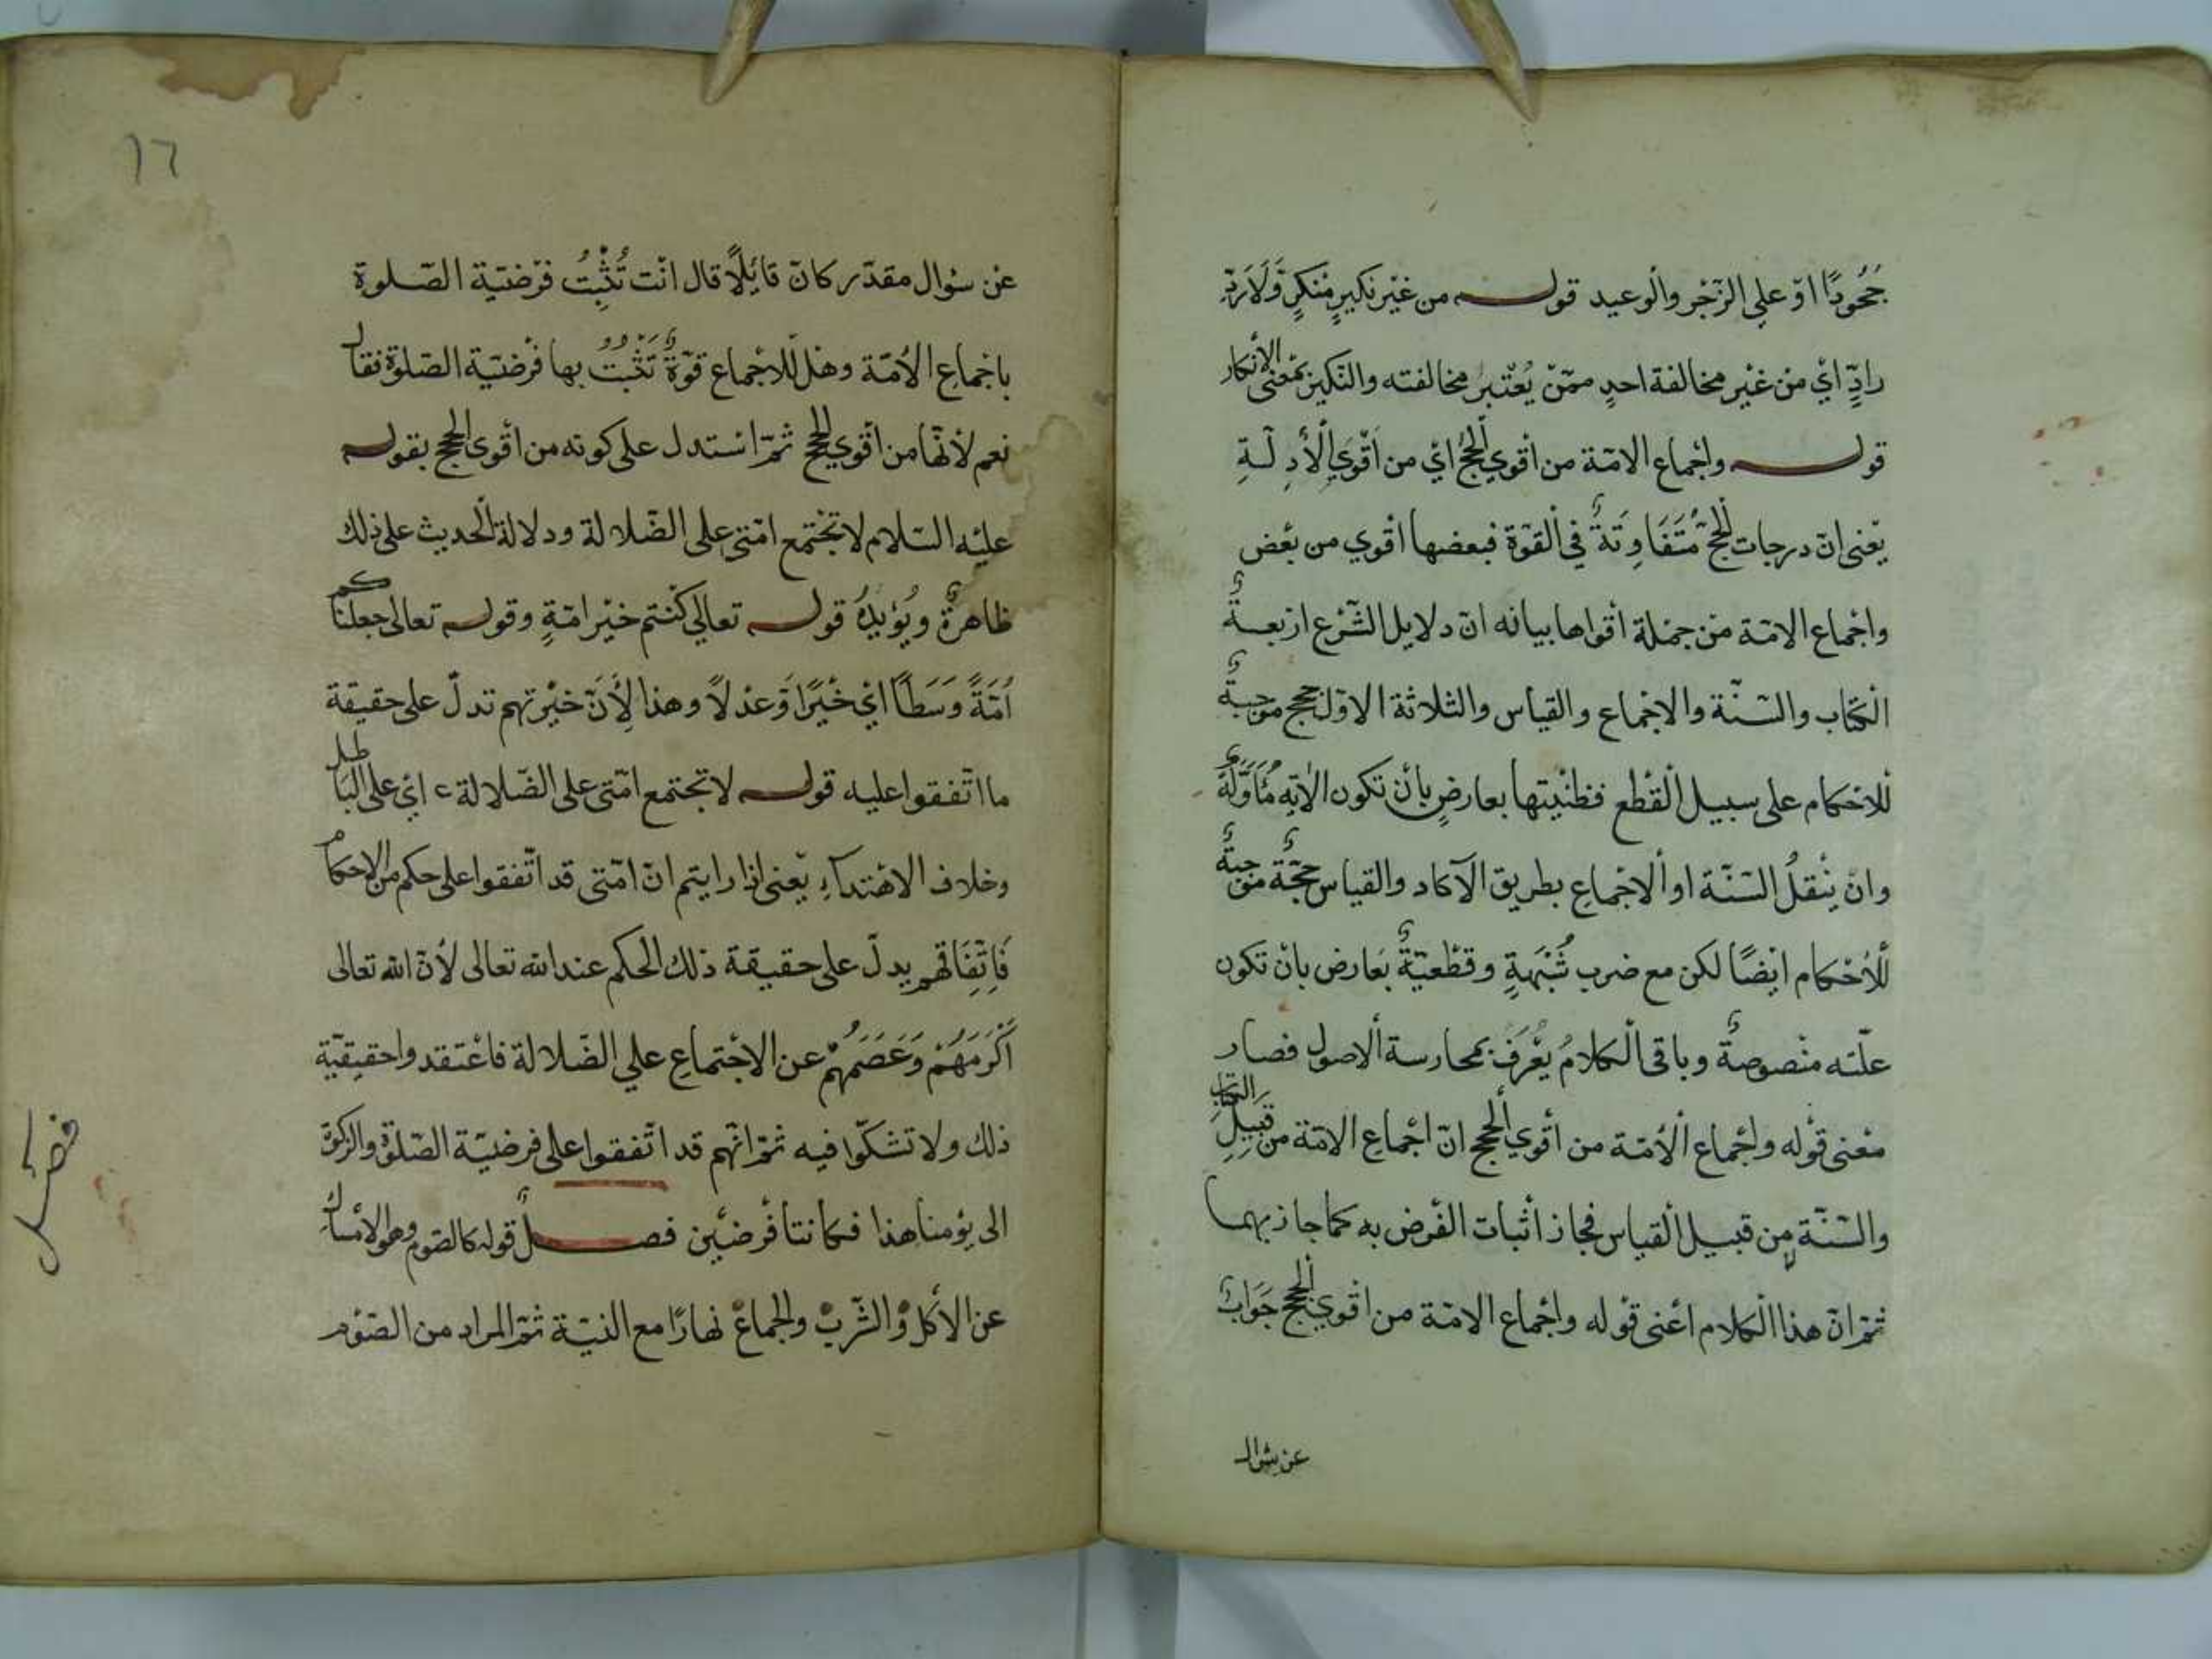 جُحُودًا اوْ على الزّجْر والوعيد قولـــه من غيْر نكيرٍ مُنكرٍ وَّلَا رَدِّ
رادٍّ ايْ منْ غيْر مخالفة احدٍ ممّنْ يُعْتبرُ مخالفته والنّكير بمعْنى الْأنكار
قولـــه واجْماع الامّة من أقوي الْحُجج ايْ من اَقْوَي الْأدِلّةِ
يعْنى انّ درجات الْحجج مُتَفَاوِتَةٌ في الْقوّة فبعضها اقْوي من بعْض
واجْماع الامّة منْ جمْلة أقْواها بيانه انّ دلايل الشّرْع ارْبعــةٌ
الْكتاب والسّنّة والاجْماع والقياس والثلاثة الاوّل حجج موجبةٌ
للاحْكام على سبيل الْقطْع فظنّيتها بعارضٍ بأنْ تكون الاٰية مُأوَّلَةً
وانْ ينْقلُ السّنّة او الْاجْماعِ بطريق الآحاد والقياس حجّةٌ موجبةٌ
لْلأحْكام ايْضًا لكن مع ضرب شُبْهةٍ وقطْعيّةٌ بعارض بانْ تكون
علّته منْصوصةٌ وباقى الْكلامُ يُعْرَفُ بمحارسة الْاصول فصار
معْنى قوْله واجْماع الْأمّة من أقوي الْحجج انّ اجْماع الامّة من قبيل الكتاب
والسّنّة من قبيل الْقياس فجاز أثْبات الفرْض به كما جاز بهما
ثمّ انّ هذا الْكلام اعْنى قوْله واجْماع الامّة من اقْوي الْحجج جَوَابٌ
عن سؤال
١٦
عنْ سؤال مقدّر كانّ قائلًا قال انْت تُثْبِتُ فرْضيّة الصّلوة
باجْماع الْأمّة وهلْ للاجْماع قوّةٌ تَثْبُتُ بها فرْضيّة الصّلوة فقال
نعم لأنّها من أقوي الحجج ثمّ اسْتدل على كونه من أقوى الحجج بقولــه
عليْه السّلام لا تجْتمع امّتى على الضّلالة ودلالة الْحديث على ذلك
ظاهرةٌ ويُؤيّدهُ قولـــه تعالي كنْتم خيْر امّةٍ وقولــه تعالى جعلناكم
اُمّةً وَسَطًا ايْ خيْرًا وَّعدْلًا وهذا لِأَنَّ خيْرتهم تدلّ على حقيقة
ما اتّفقوا عليه قولـــه لا تجتمع امّتى على الضّلالة اي على الباطل
وخلاف الاهْتدآءِ يعْنى اذا رايتم انّ امّتى قد اتّفقوا على حكم من الاحكام
فَاِتِّفَاقهم يدلّ على حقيقة ذلك الحكم عند الله تعالى لأنّ الله تعالى
اَكْرَمَهُمْ وَعَصَمَهُمْ عن الاجْتماع علي الضّلالة فاعْتقدوا حقيقيّة
ذلك ولا تشكّوا فيه ثمّ انّهم قد اتّفقوا على فرضيّة الصّلوة والزكوة
الى يوْمنا هذا فكانتا فرْضيْن فصـــلٌ قوله كالصّوم وهو الامْساك
عن الأكْل والشّرْب والجماع نهارًا مع النيّة ثمّ المراد من الصّوْم
فصل